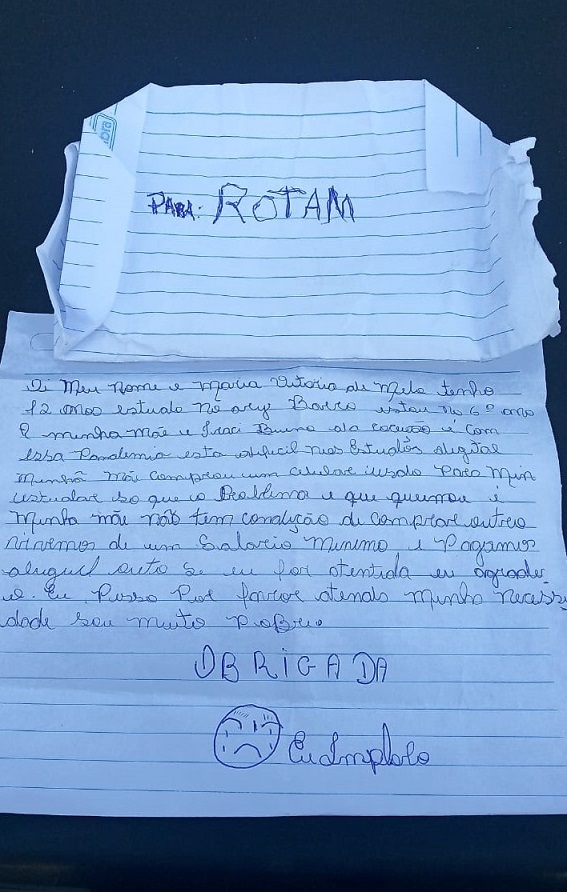 bra
PARA: ROTAM
Oi Meu nome e Maria Vitoria de Melo tenho
12 anos estudo no ary Barro estou no 6º ano
E minha mãe e Iraci Bueno da e com
essa Pandemia esta dificil nos Estudos
minha mãe comprou um celular usado Para Min
estudar so que o Problema e que queimou e
Minha mãe não tem condição de comprar outro
vivemos de um Salario Minimo e Pagamos
aluguel Se eu for atentida eu agrade
Eu Posso Por favor atenda Minha necessi
dade sou muito Pobre
OBRIGADA
Eu Imploro